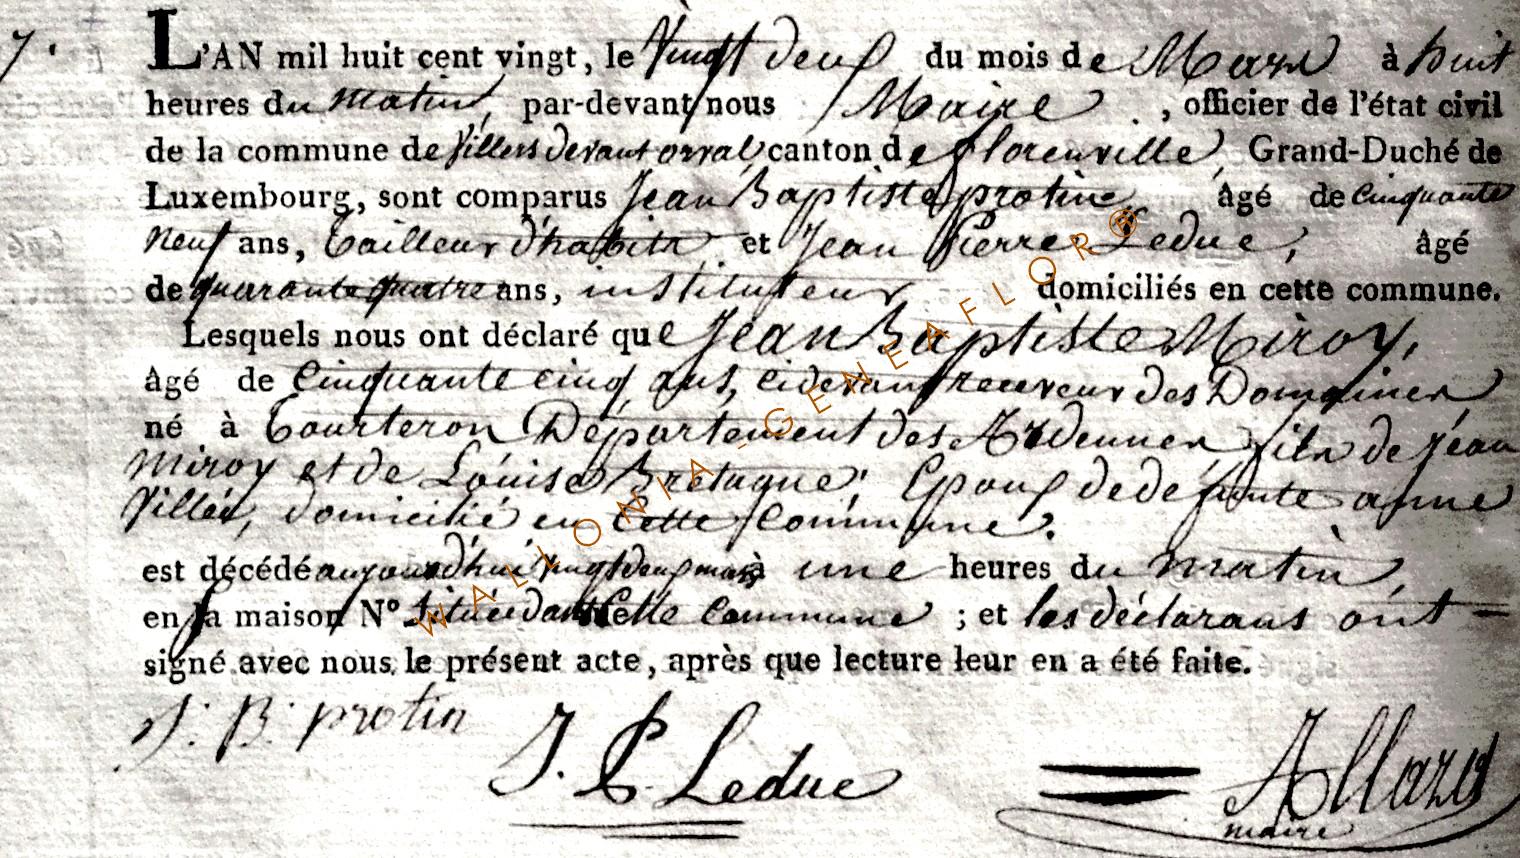 7.
L'AN mil huit cent vingt, le vingt deux du mois de Mars à huit
heures du matin, par-devant nous Maire , officier de l'état civil
de la commune de Villers devant orval, canton de florenville, Grand-Duché de
Luxembourg, sont comparus Jean Baptiste protin, âgé de cinquante
neuf ans, tailleur d'habits et Jean Pierre Leduc, âgé
de quarante quatre ans, instituteur domiciliés en cette commune.
Lesquels nous ont déclaré que Jean Baptiste Miroy,
âgé de cinquante cinq ans, cidevant receveur des Domaines
né à Tourteron Département des Ardennes fils de Jean
Miroy et de Louise Bretagne; Epoux de défunte anne
domicilié en cette commune.
est décédé aujourd'hui vingt deux mars à une heures du matin,
en sa maison N° située dans cette commune ; et les déclarans ont =
signé avec nous le présent acte, après que lecture leur en a été faite.
J: B: protin
J. P. Leduc
maire
WALLONIA-GENEAFLOR®